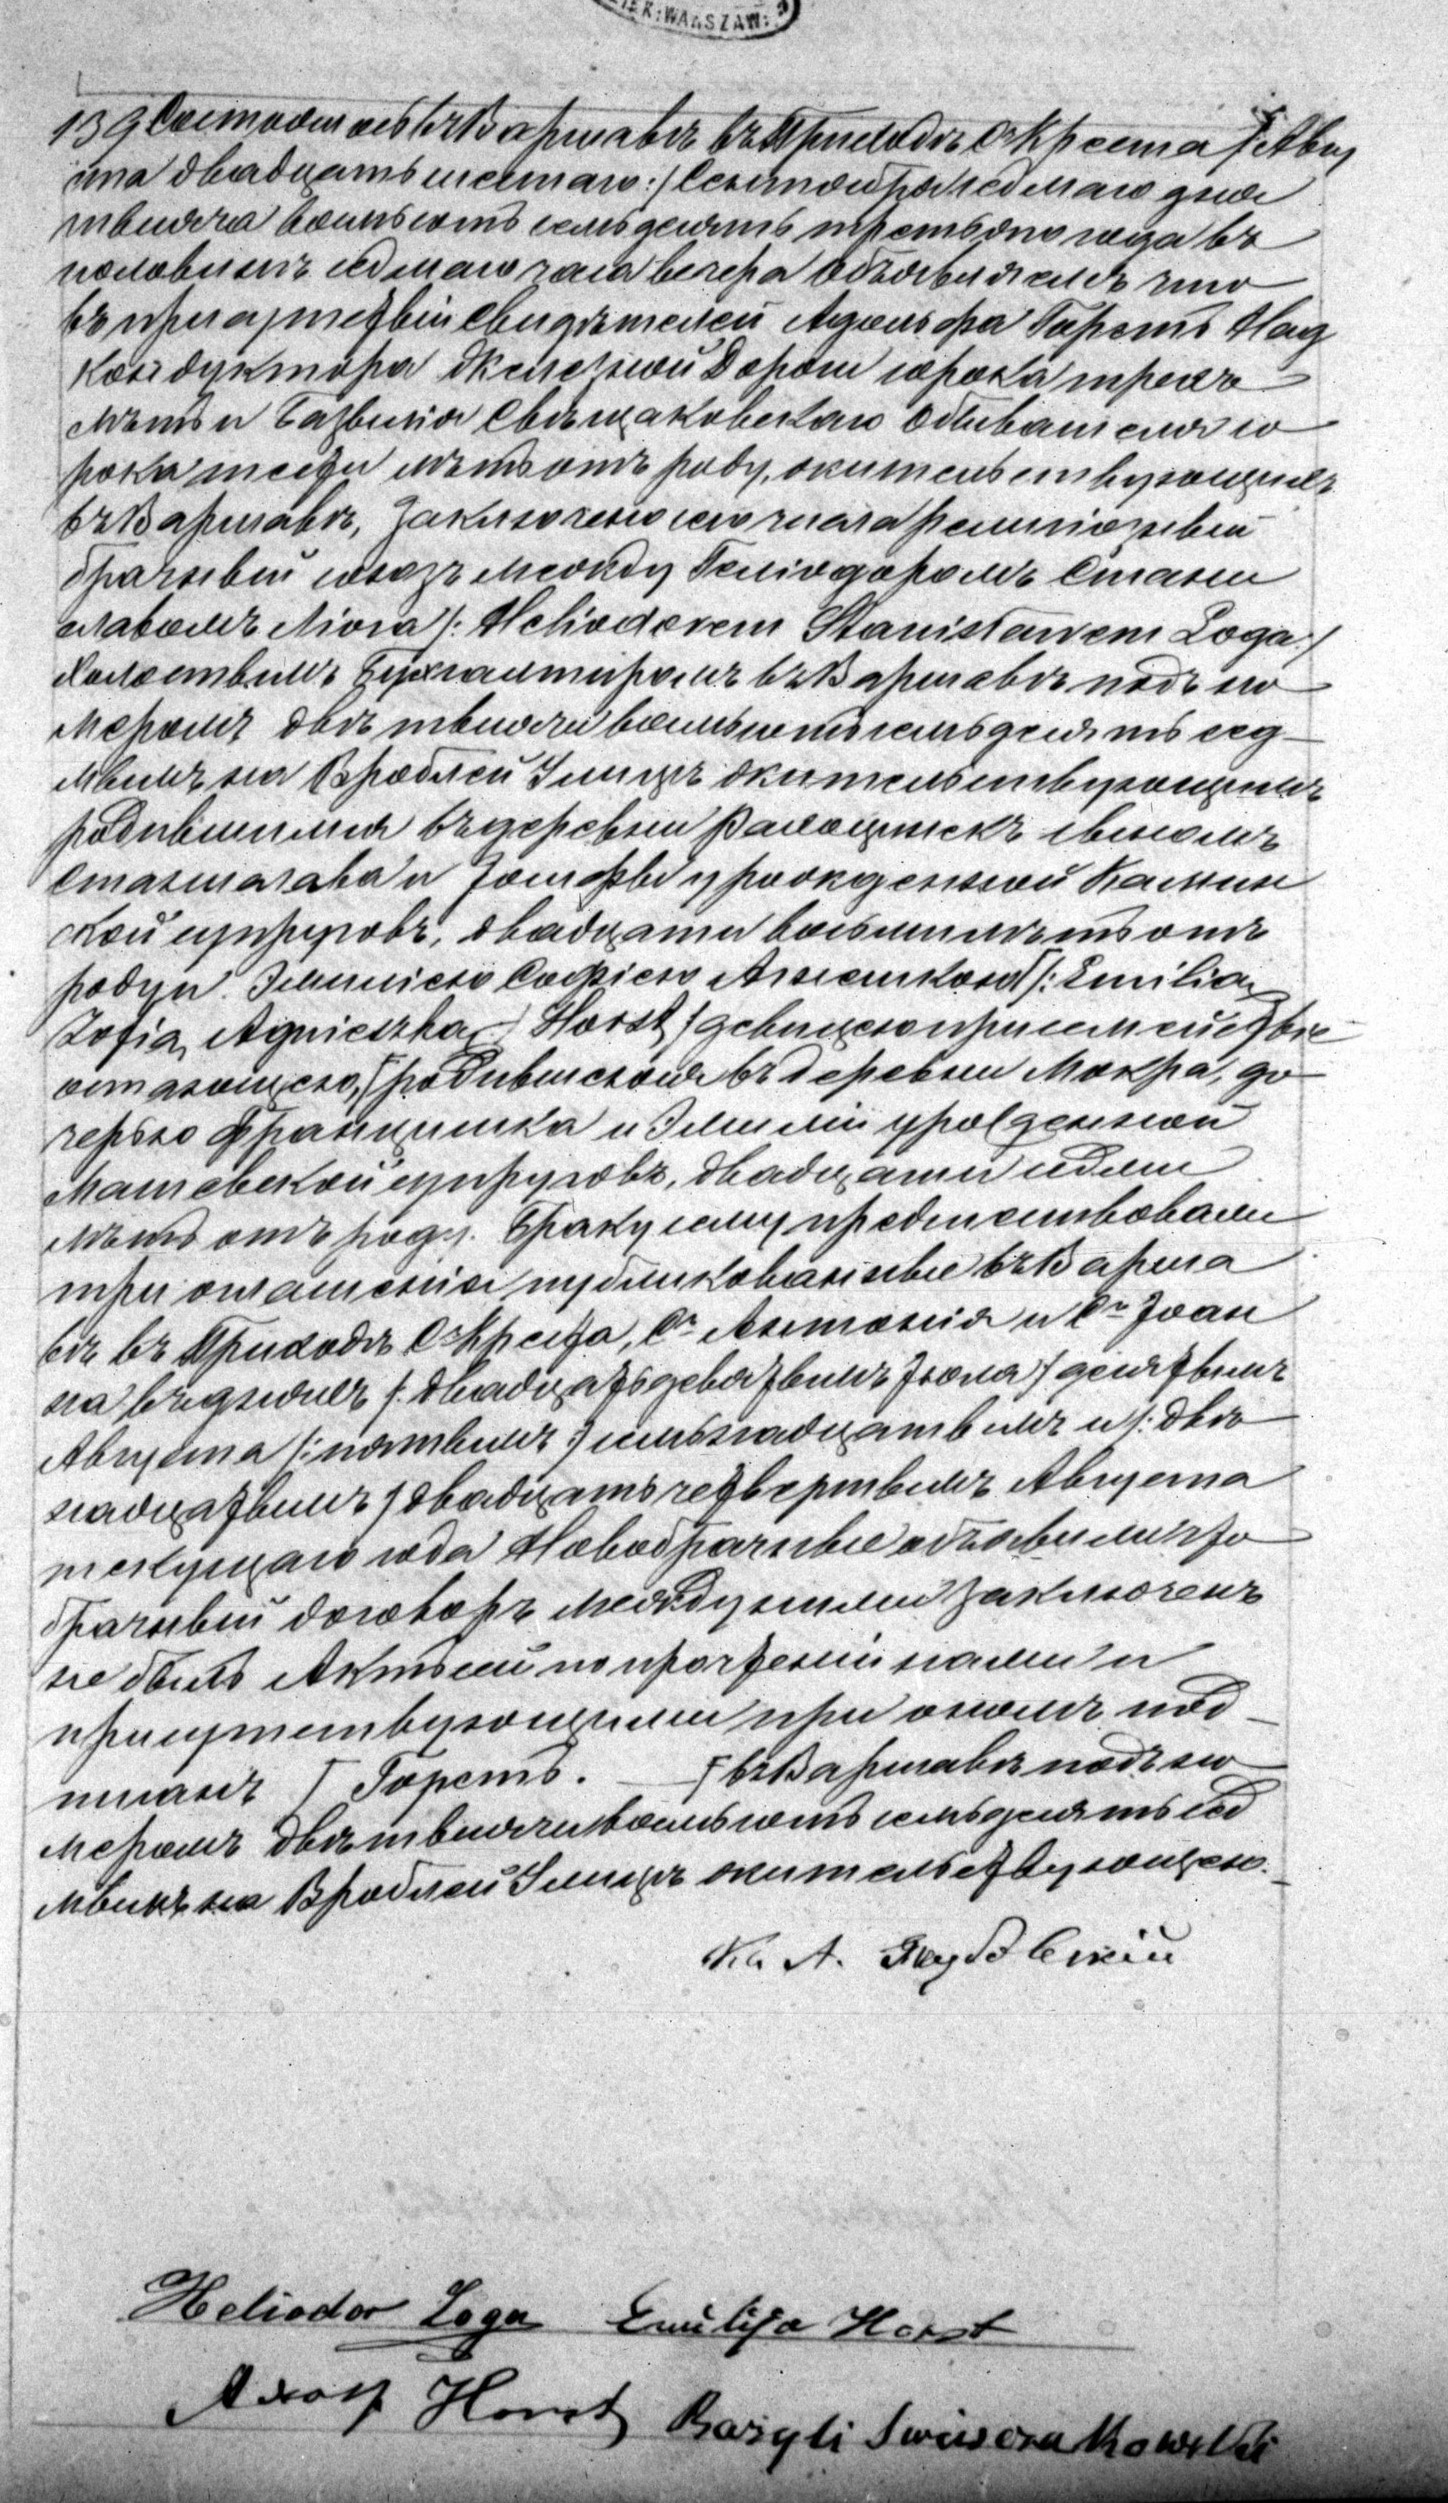 WARSZAW:
139 Состоялось въ Варшавѣ въ Приходѣ Св Креста /: Авгу
ста двадцать шестаго :/ Сентября седмаго дня
тысяча восемьсотъ семьдесятъ третьяго года въ
половинѣ седмаго часа вечера Объявляемъ что
въ присутствіи Свидѣтелей Адольфа Горстъ Над
кондуктора Желѣзной Дороги сорока трехъ
лѣтъ и Базылія Свѣщаковскаго Обывателя со
рока лѣтъ отъ роду, жительствующихъ
въ Варшавѣ, Заключенъ сего числа религіозный
брачный союзъ между Геліодоромъ Стани
славомъ Лога /: Heliodorem Stanisławem Loga :/
Холостымъ Бухгалтеромъ въ Варшавѣ подъ но
меромъ двѣ тысячи восемьсотъ семьдесятъ сед
мымъ на Вроблей Улицѣ жительствующимъ
родившимся въ деревни сыномъ
Станислава и Зофы урожденной Камин
ской супруговъ, двадцати восьми лѣтъ отъ
роду и Эмиліею Софіею Агнешкою /: Emilią
Zofią Agnieszką :/ Horst / девицею при семействѣ
остающею, родившеюся въ деревни Мокра, до
черью Францишка и Эмиліи урожденной
Машевской супруговъ, двадцати седми
лѣтъ отъ роду. Браку сему предшествовали
три оглашенія публикованные въ Варша
вѣ въ Приходѣ Св Креста, Св Антонія и Св Іоан
на въ дняхъ /: двадцать девятымъ Іюля / десятымъ
Августа /: пятымъ :/ семьнадцатымъ и /: двѣ
надцатымъ / двадцать четвертымъ Августа
текущаго года Новобрачные объявили что
брачный договоръ между ними заключенъ
не былъ Актъ сей по прочтеніи нами и
присутствующими при ономъ под
писанъ / Горстъ. — / въ Варшавѣ подъ но
меромъ двѣ тысячи восемьсотъ семьдесятъ сед
мымъ на Вроблей Улицѣ жительствующею.
Кс. А.
Heliodor Loga Emilija Horst
Adolf Horst Bazyli